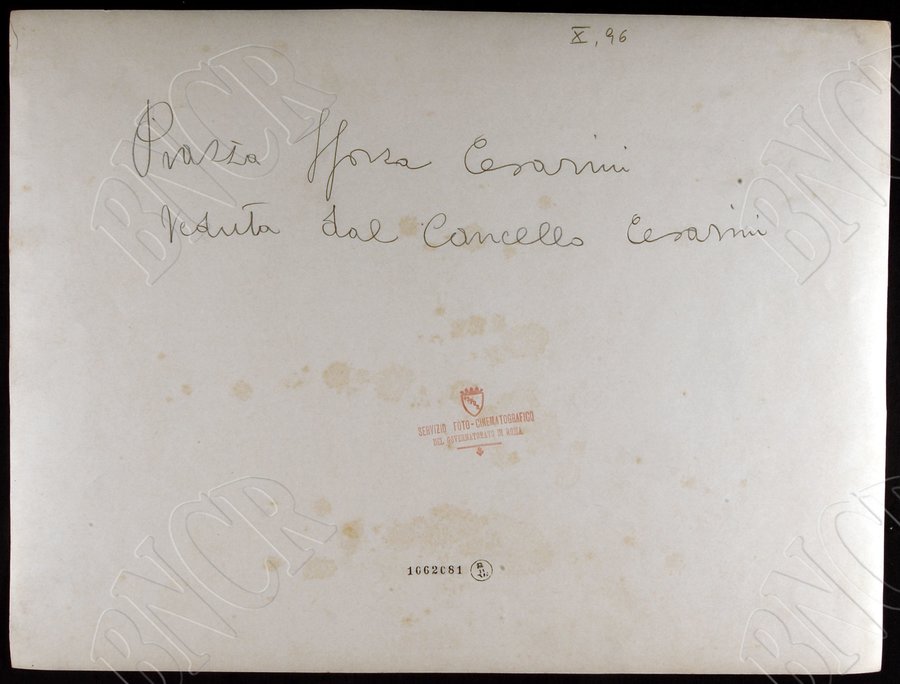 X, 96
Piazza Sforza Cesarini
Veduta dal Cancello Cesarini
SPQR
SERVIZIO FOTO-CINEMATOGRAFICO
DEL GOVERNATORATO DI ROMA
1062081
BNCR
BNCR
BNCR
BNCR